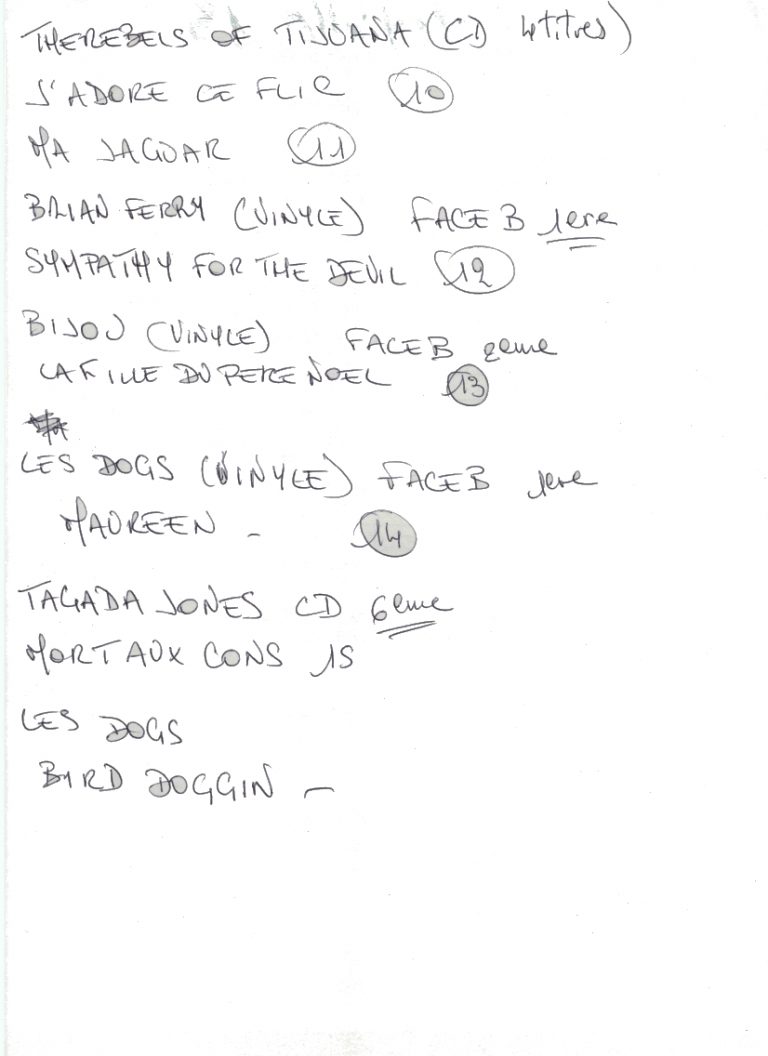 THE REBELS OF TIJUANA (CD 4 titres)
J'ADORE CE FLIC 10
MA JAGUAR 11
BRIAN FERRY (VINYLE) FACE B 1ere
SYMPATHY FOR THE DEVIL 12
BIJOU (VINYLE) FACE B 2eme
LA FILLE DU PERE NOEL 13
LES DOGS (VINYLE) FACE B 1ere
MAUREEN - 14
TAGADA JONES CD 6eme
MORT AUX CONS 15
LES DOGS
BIRD DOGGIN -